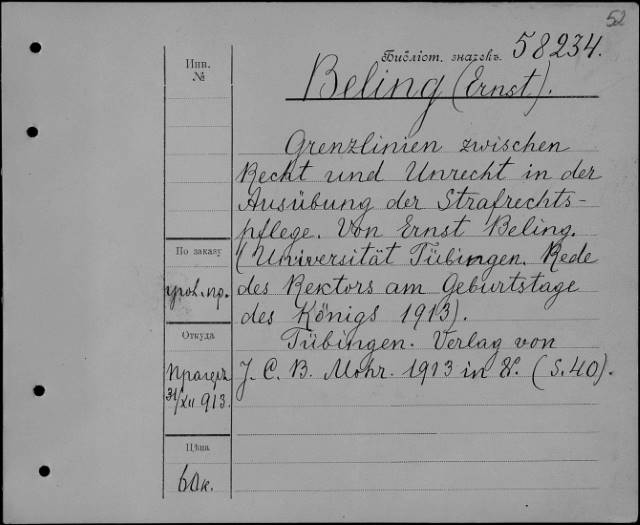 52
Библіот. значекъ. 58234.
Инв.
№
Beling (Ernst).
Grenzlinien zwischen
Recht und Unrecht in der
Ausübung der Strafrechts-
pflege. Von Ernst Beling.
(Universität Tübingen. Rede
des Rektors am Geburtstage
des Königs 1913).
Tübingen. Verlag von
J. C. B. Mohr. 1913 in 8°. (S. 40).
По заказу
Откуда
Прагеръ
31/XII 913.
Цѣна
60 к.